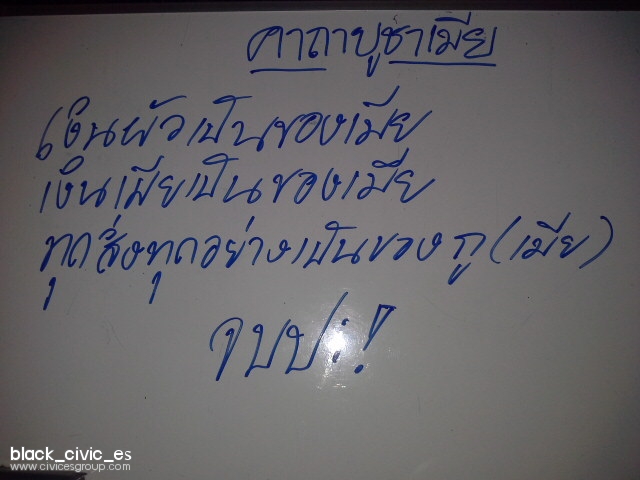 คาถาบูชาเมีย
เงินผัวเป็นของเมีย
เงินเมียเป็นของเมีย
ทุกสิ่งทุกอย่างเป็นของกู(เมีย)
จบปะ!
black_civic_es
www.civicesgroup.com